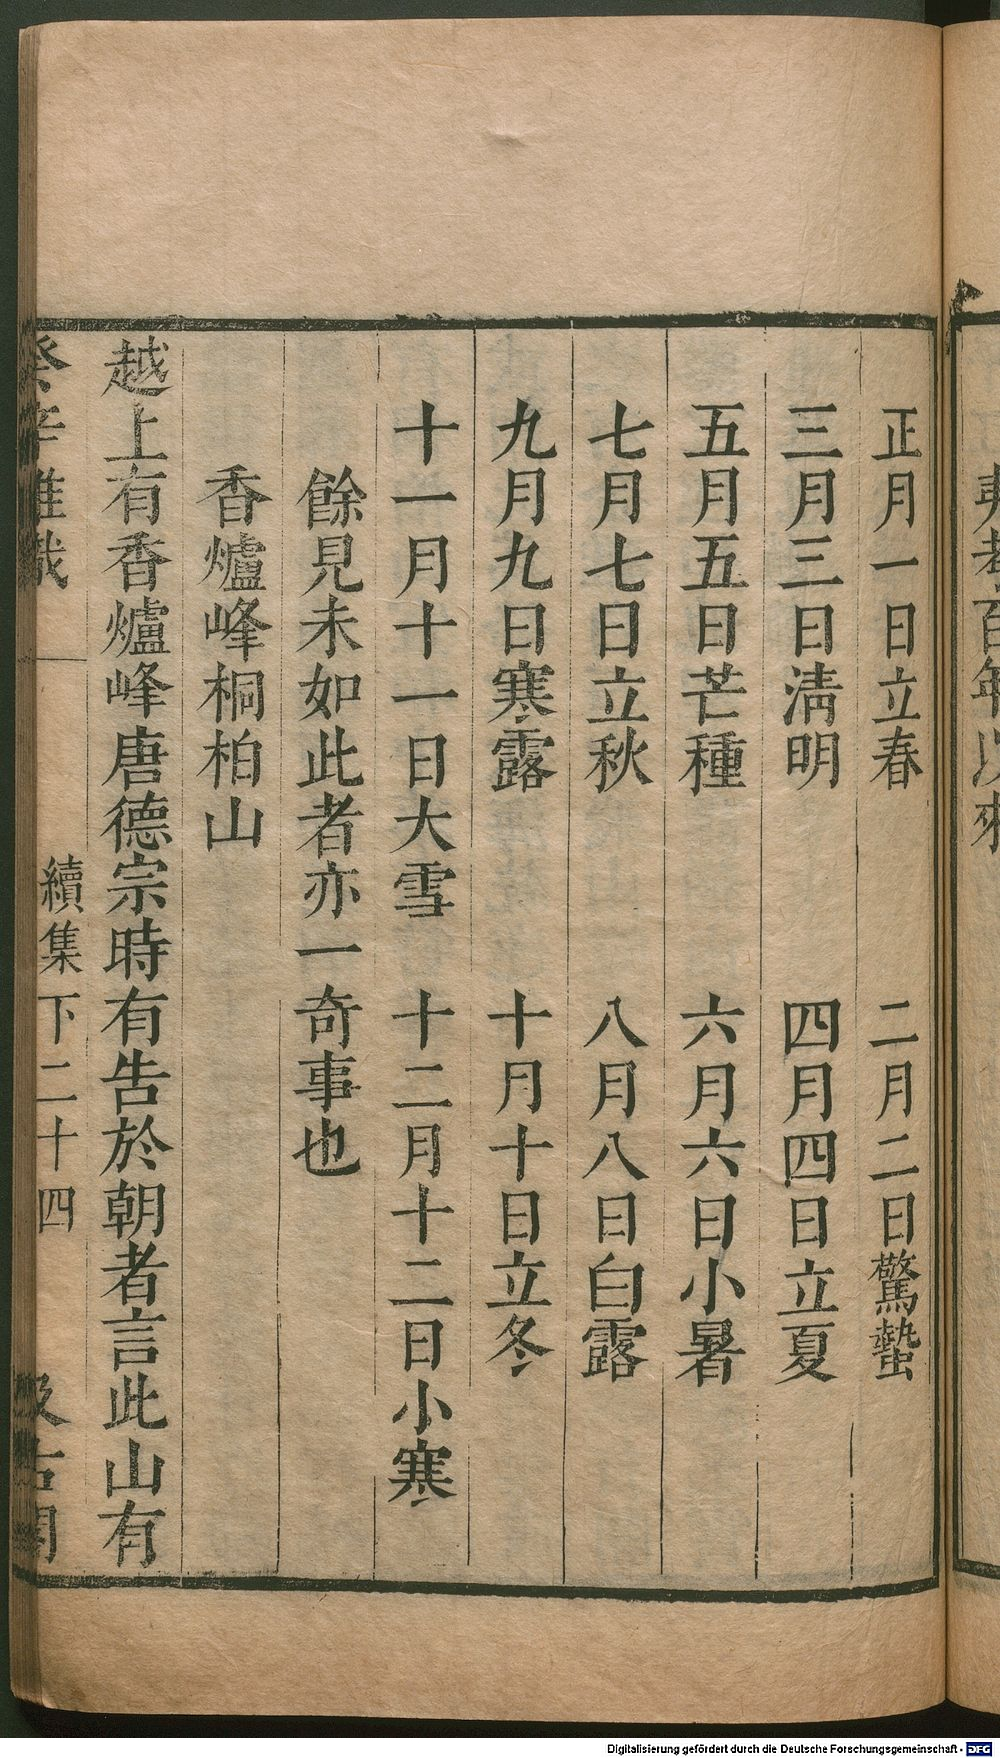 正月一日立春　二月二日驚蟄
三月三日淸明　四月四日立夏
五月五日芒種　六月六日小暑
七月七日立秋　八月八日白露
九月九日寒露　十月十日立冬
十一月十一日大雪　十二月十二日小寒
餘見未如此者亦一奇事也
香爐峰桐柏山
越上有香爐峰唐德宗時有告於朝者言此山有
癸辛雜識　續集下二十四　汲古閣
Digitalisierung gefördert durch die Deutsche Forschungsgemeinschaft - DFG